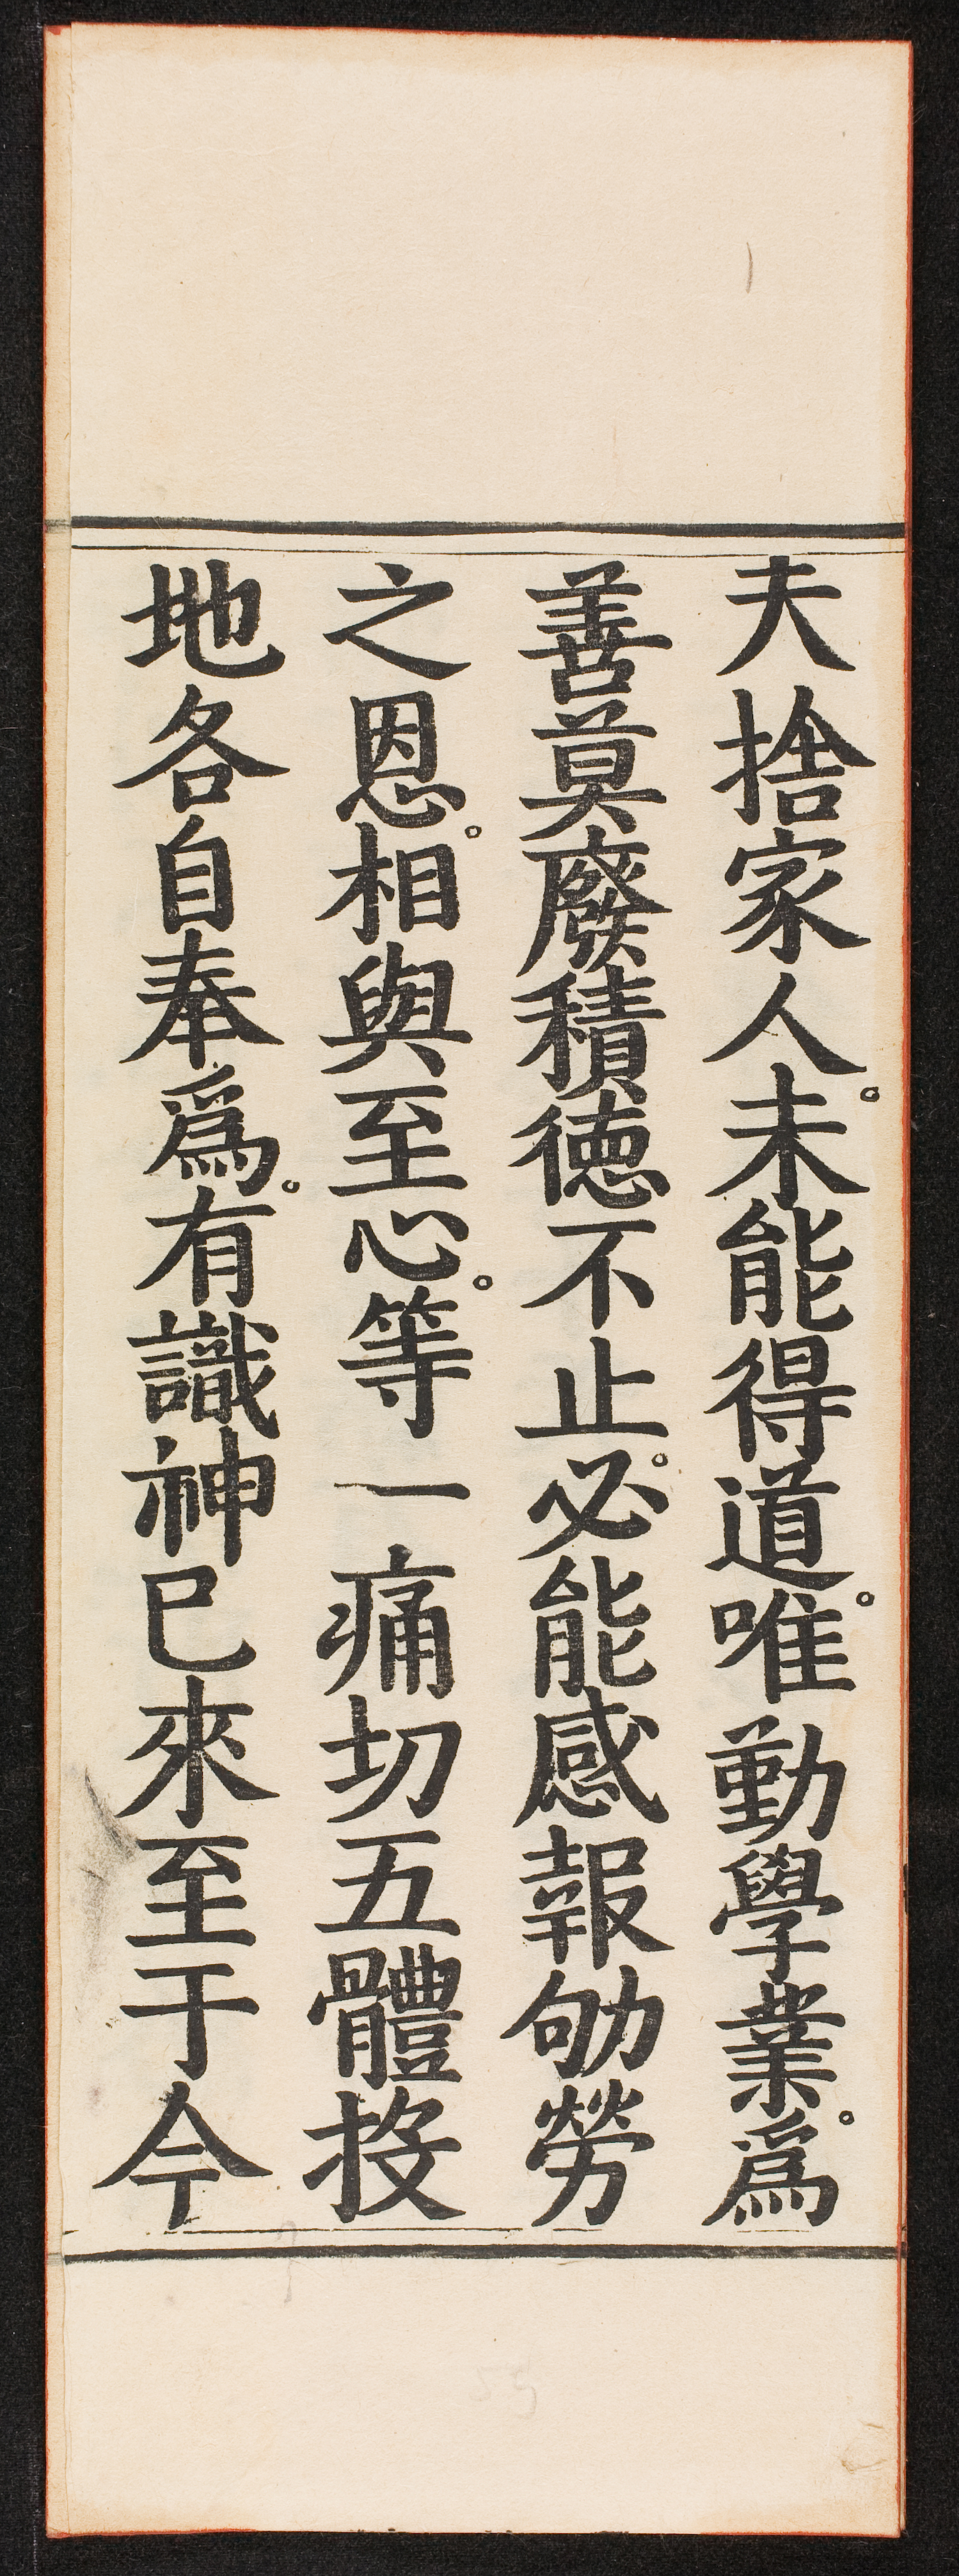 夫捨家人。未能得道。唯勤學業。爲
善莫廢積德不止。必能感報劬勞
之恩。相與至心。等一痛切五體投
地各自奉爲。有識神已來至于今